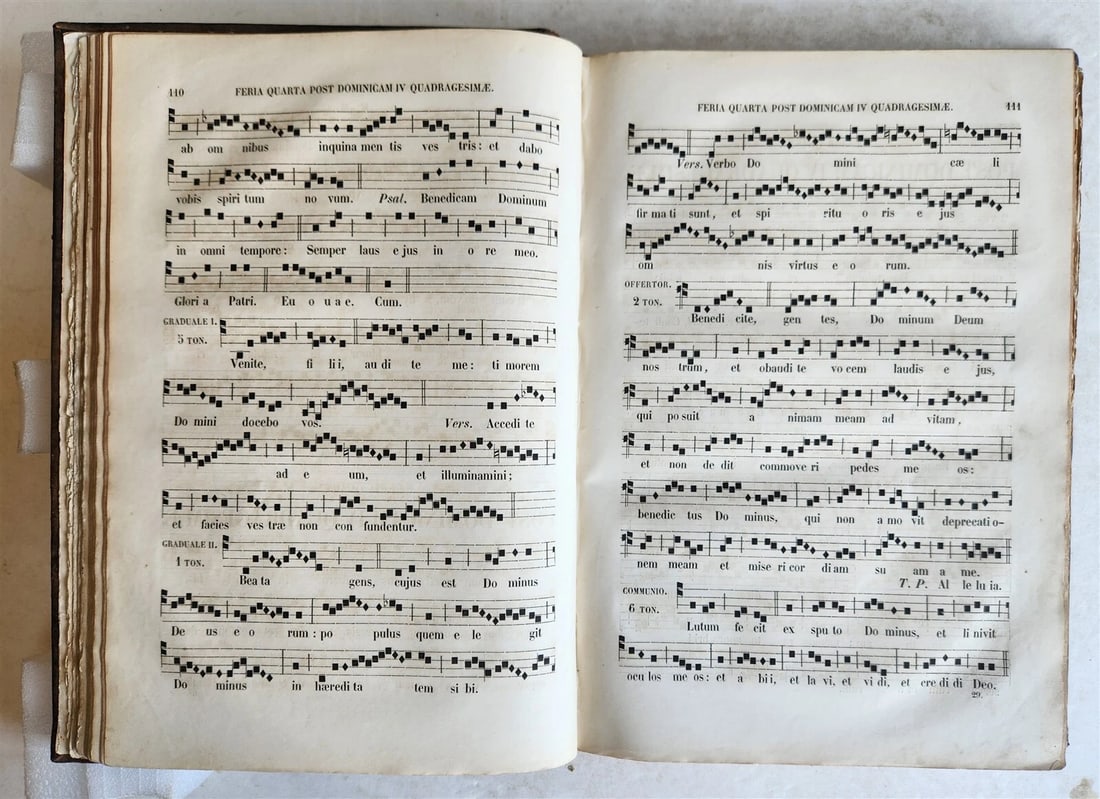 110 FERIA QUARTA POST DOMINICAM IV QUADRAGESIMÆ.
ab om nibus inquina men tis ves tris: et dabo
vobis spiri tum no vum. Psal. Benedicam Dominum
in omni tempore: Semper laus e jus in o re meo.
Glori a Patri. Eu o u a e. Cum.
GRADUALE I.
5 TON.
Venite, fi li i, au di te me: ti morem
Do mini docebo vos. Vers. Accedi te
ad e um, et illuminamini;
et facies ves træ non con fundentur.
GRADUALE II.
1 TON.
Bea ta gens, cujus est Do minus
De us e o rum: po pulus quem e le git
Do minus in hæredi ta tem si bi.
FERIA QUARTA POST DOMINICAM IV QUADRAGESIMÆ. 111
Vers. Verbo Do mini cæ li
fir ma ti sunt, et spi ritu o ris e jus
om nis virtus e o rum.
OFFERTOR.
2 TON.
Benedi cite, gen tes, Do minum Deum
nos trum, et obaudi te vo cem laudis e jus,
qui po suit a nimam meam ad vitam,
et non de dit commove ri pedes me os:
benedic tus Do minus, qui non a mo vit deprecati o-
nem meam et mise ri cor di am su am a me.
T. P. Al le lu ia.
COMMUNIO.
6 TON.
Lutum fe cit ex spu to Do minus, et li nivit
ocu los me os: et a bi i, et la vi, et vi di, et cre di di Deo.
29.